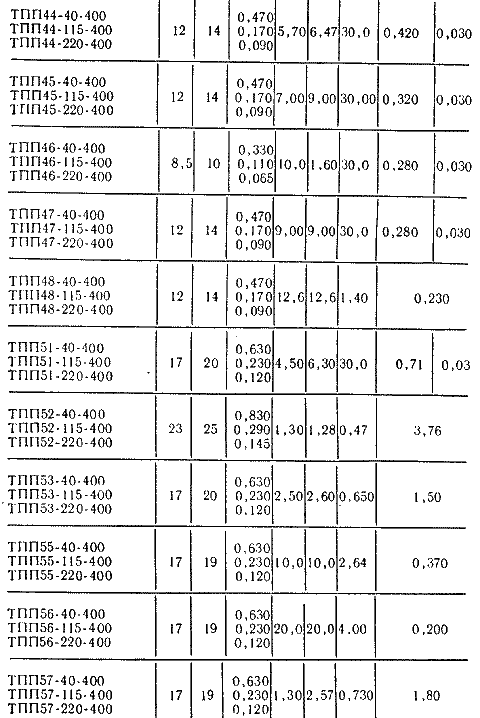 ТПП44-40-400 0,470
ТПП44-115-400 12 14 0,170 5,70 6,47 30,0 0,420 0,030
ТПП44-220-400 0,090
ТПП45-40-400 0,470
ТПП45-115-400 12 14 0,170 7,00 9,00 30,00 0,320 0,030
ТПП45-220-400 0,090
ТПП46-40-400 0,330
ТПП46-115-400 8,5 10 0,110 10,0 1,60 30,0 0,280 0,030
ТПП46-220-400 0,065
ТПП47-40-400 0,470
ТПП47-115-400 12 14 0,170 9,00 9,00 30,0 0,280 0,030
ТПП47-220-400 0,090
ТПП48-40-400 0,470
ТПП48-115-400 12 14 0,170 12,6 12,6 1,40 0,230
ТПП48-220-400 0,090
ТПП51-40-400 0,630
ТПП51-115-400 17 20 0,230 4,50 6,30 30,0 0,71 0,03
ТПП51-220-400 0,120
ТПП52-40-400 0,830
ТПП52-115-400 23 25 0,290 1,30 1,28 0,47 3,76
ТПП52-220-400 0,145
ТПП53-40-400 0,630
ТПП53-115-400 17 20 0,230 2,50 2,60 0,650 1,50
ТПП53-220-400 0,120
ТПП55-40-400 0,630
ТПП55-115-400 17 19 0,230 10,0 10,0 2,64 0,370
ТПП55-220-400 0,120
ТПП56-40-400 0,630
ТПП56-115-400 17 19 0,230 20,0 20,0 4.00 0,200
ТПП56-220-400 0,120
ТПП57-40-400 0,630
ТПП57-115-400 17 19 0,230 1,30 2,57 0,730 1,80
ТПП57-220-400 0,120